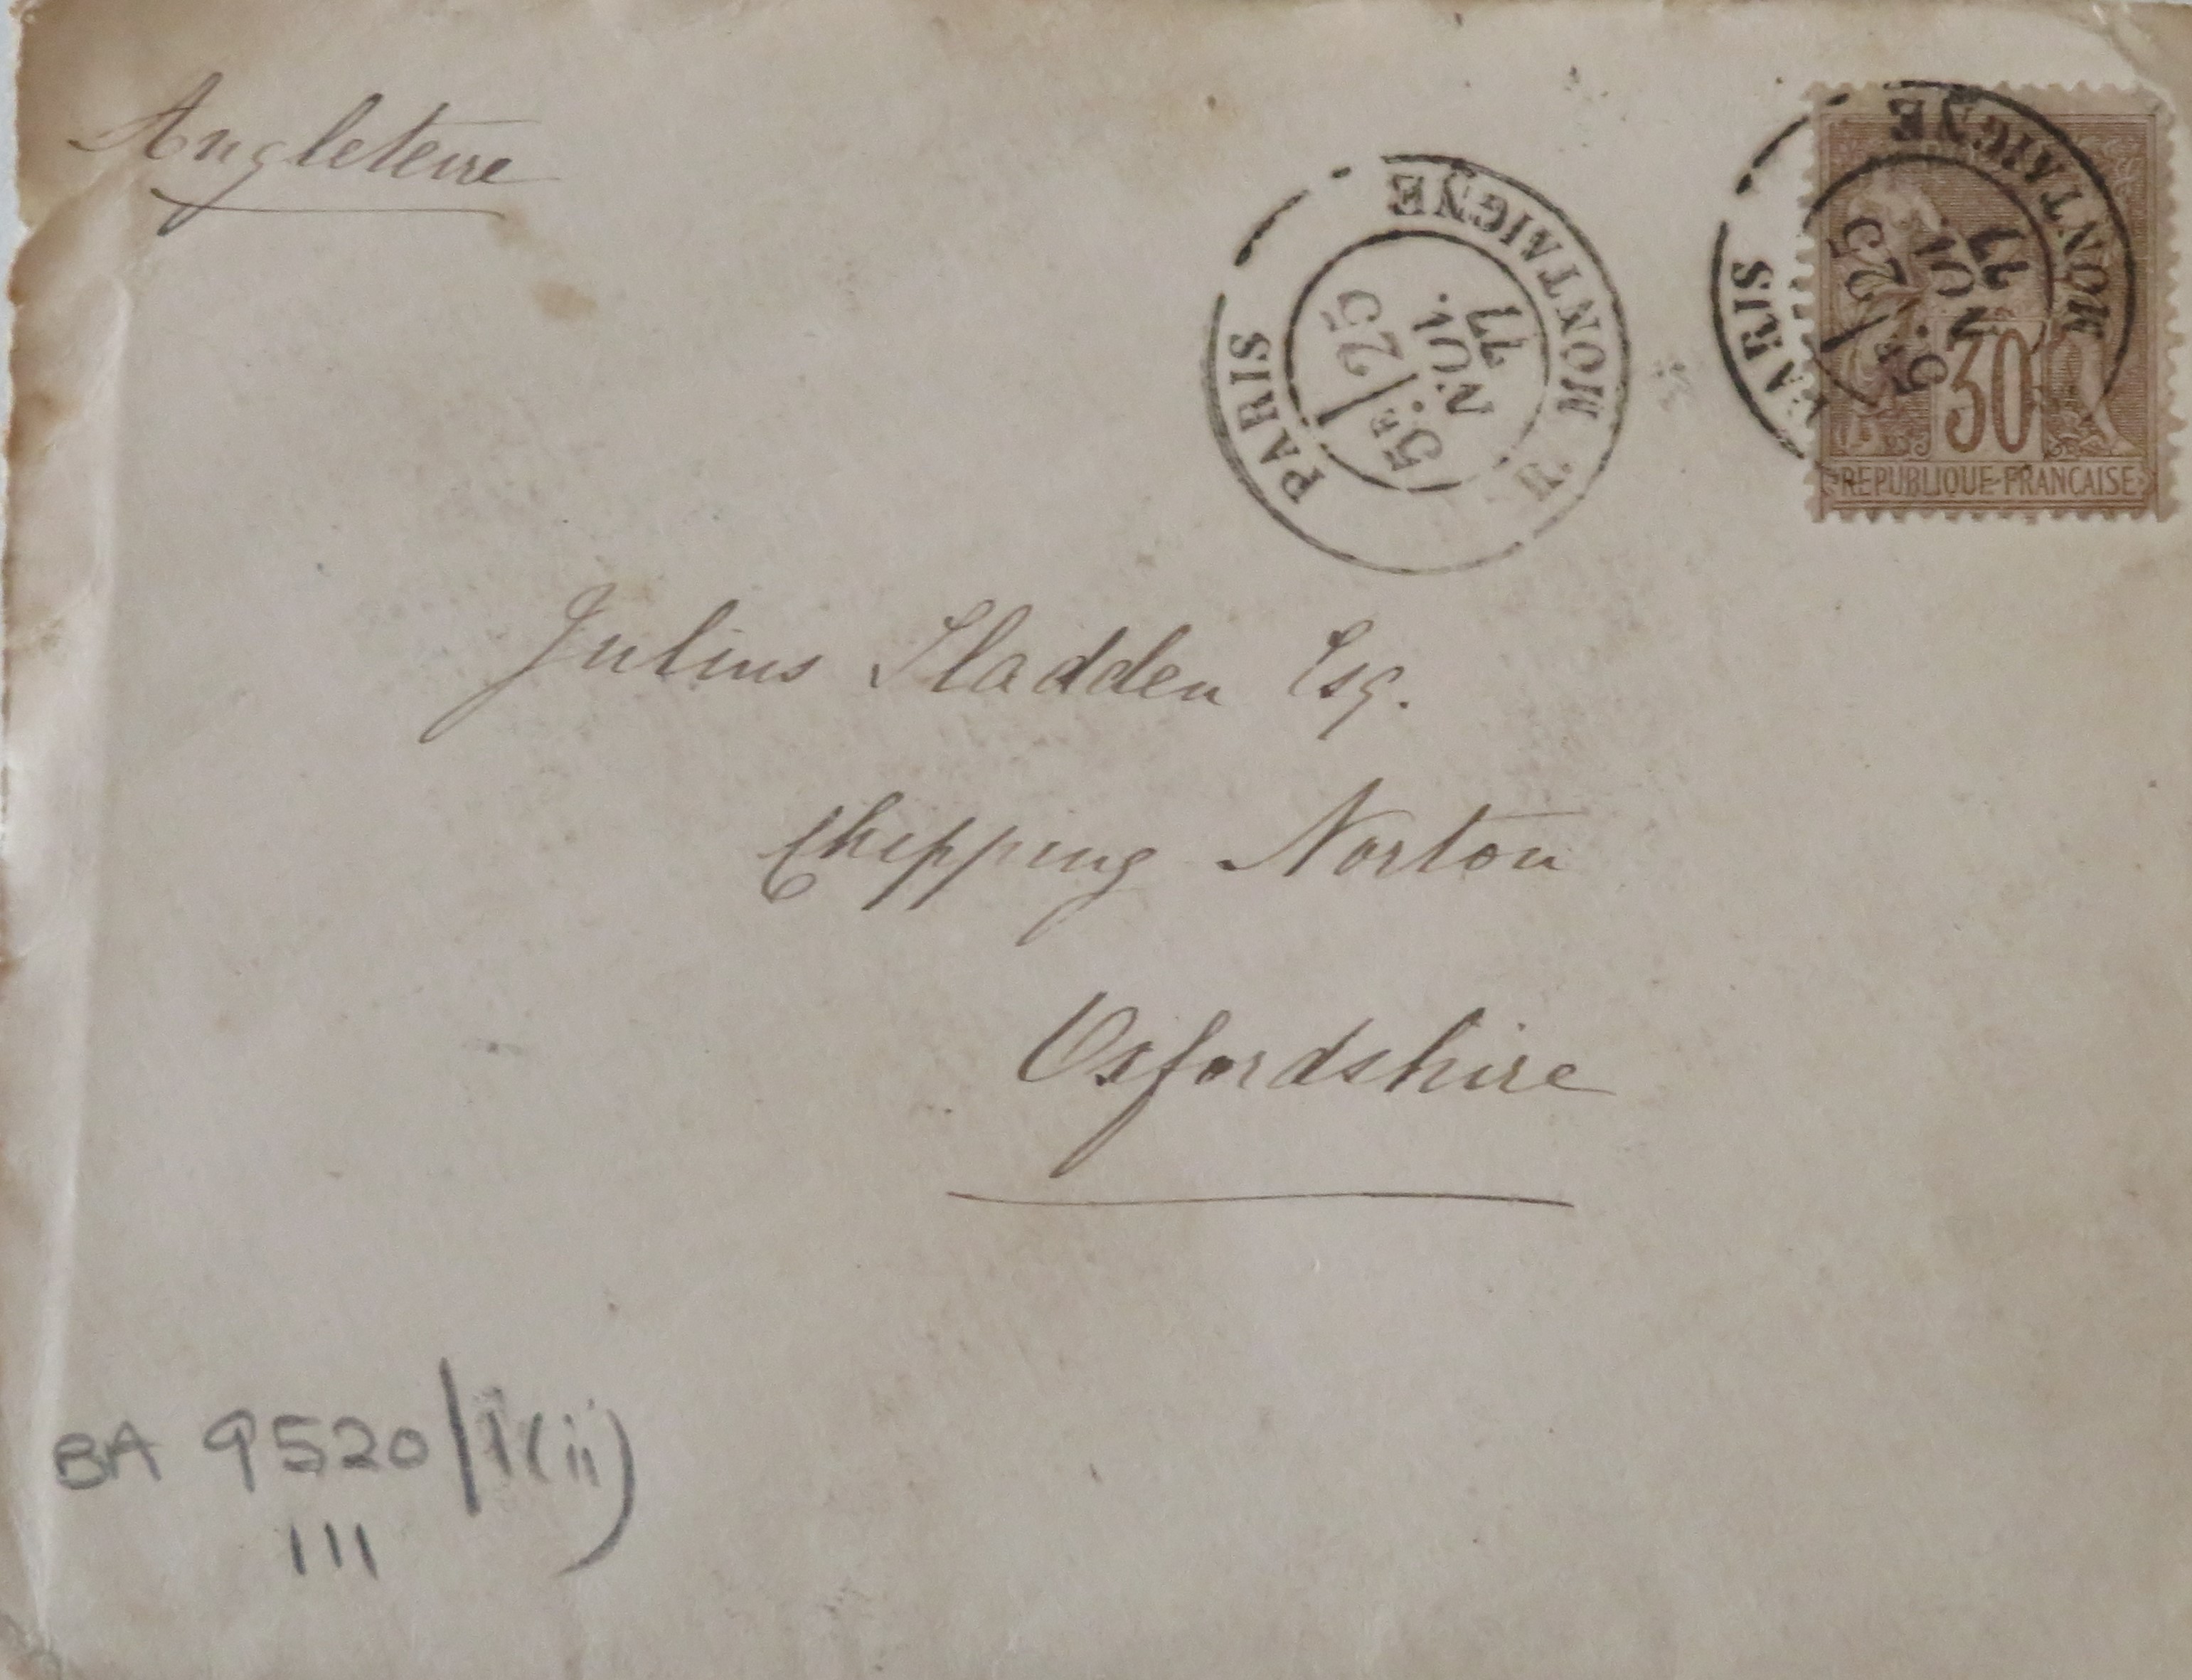 Angleterre
PARIS MONTAIGNE
5E/ 25
NOV.
77
PARIS MONTAIGNE
5E/ 25
NOV.
77
30
REPUBLIQUE FRANCAISE
Julius Sladden Esq.
Chipping Norton
Oxfordshire
BA 9520/1(ii)
111